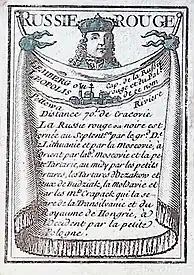 RUSSIE ROUGE
LEMBERG ou
LEOPOLIS
Cap. de la Russie
Rivière
Distance 70. de Cracovie
La Russie rouge ou noire est
bornée au Septent. par le gr. D.
de Lithuanie et par la Moscovie, à
l'orient par la Moscovie et la pe-
tite Tartarie, au midy par les petits
Tartares, les Tartares d'Oczakow et
ceux de Budziak, la Moldavie et
par le M. Crapack qui la se-
pare de la Transilvanie et du
Royaume de Hongrie, à
l'Occident par la petite
Pologne.